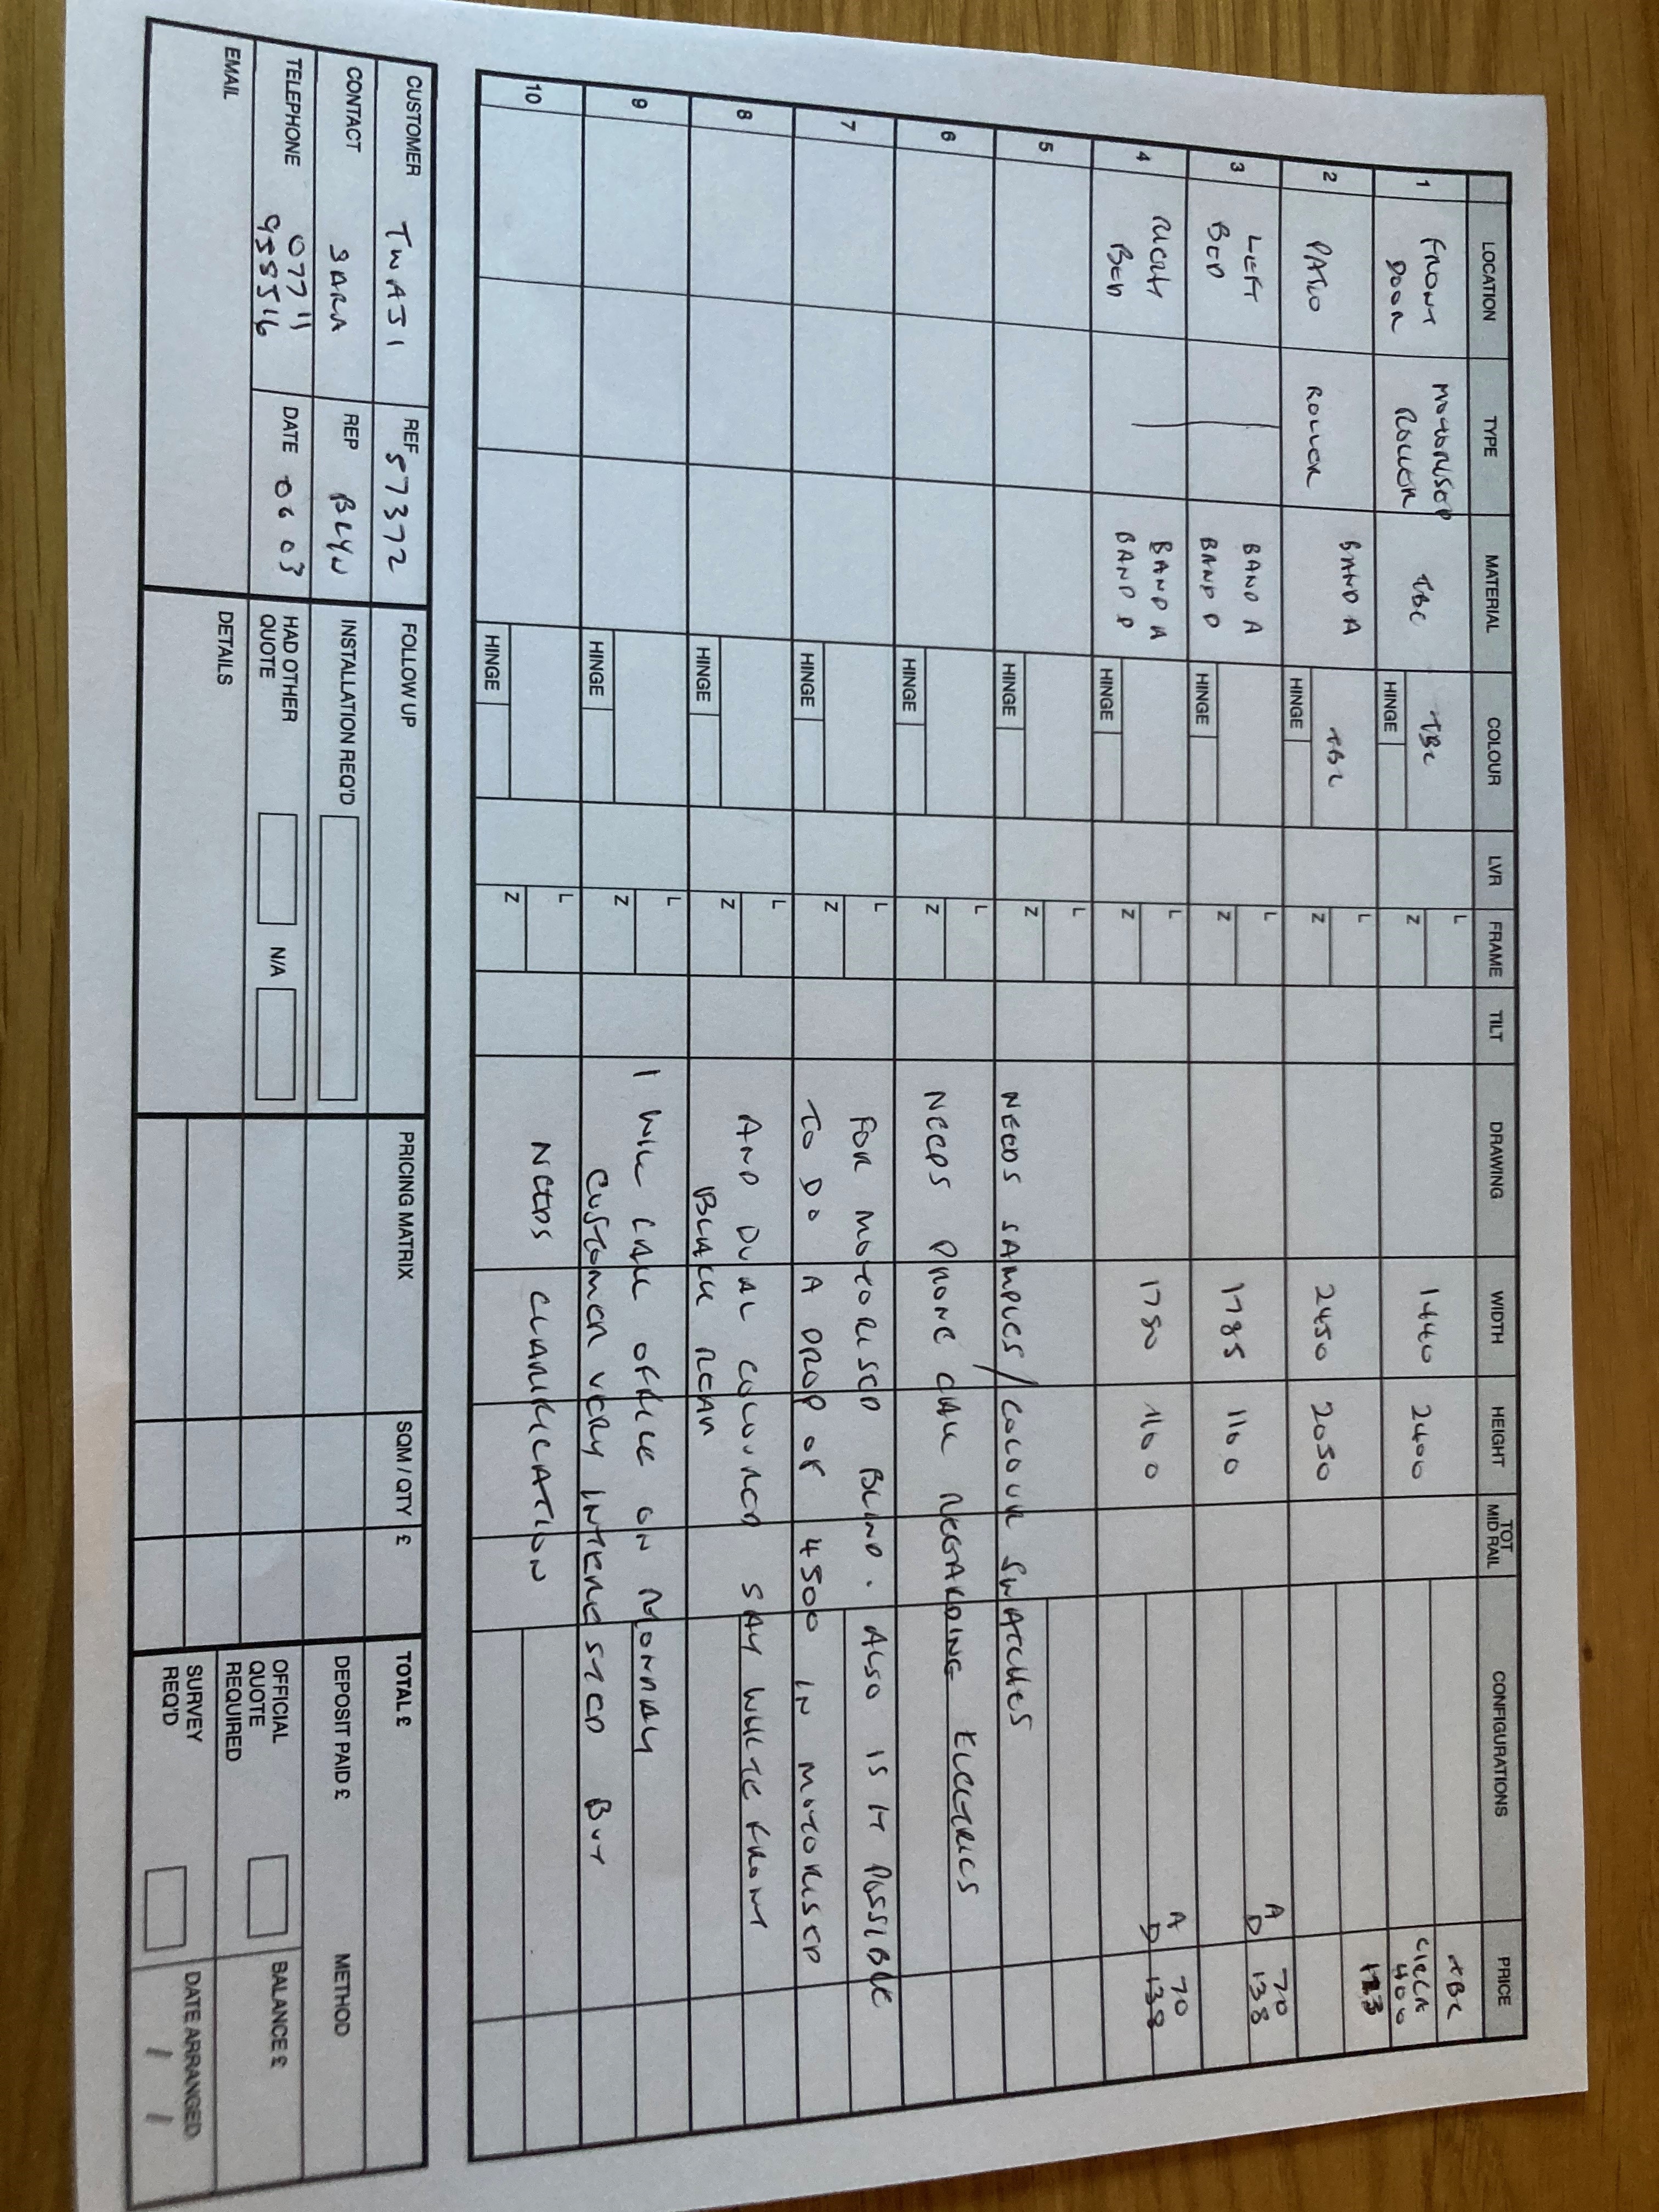 LOCATION TYPE MATERIAL COLOUR LVR FRAME TILT DRAWING WIDTH HEIGHT TOT MID RAIL CONFIGURATIONS PRICE
1 FRONT DOOR MOTORISED ROLLER TBC TBC HINGE L Z 1440 2400 TBC CIRCA 400
2 PATIO ROLLER BAND A TBC HINGE L Z 2450 2050
3 LEFT BED BAND A BAND D HINGE L Z 1785 1100 A 70 D 138
4 RIGHT BED BAND A BAND D HINGE L Z 1780 1100 A 70 D 138
5 HINGE L Z
NEEDS SAMPLES / COLOUR SWATCHES
6 HINGE L Z
NEEDS PHONE CALL REGARDING ELECTRICS
7 HINGE L Z
FOR MOTORISED BLIND. ALSO IS IT POSSIBLE
TO DO A DROP OF 4500 IN MOTORISED
8 HINGE L Z
AND DUAL COLOURED SAY WHITE FRONT
BLACK REAR
9 HINGE L Z
I WILL CALL OFFICE ON MONDAY
CUSTOMER VERY INTERESTED BUT
10 HINGE L Z
NEEDS CLARIFICATION
CUSTOMER REF 57372 FOLLOW UP PRICING MATRIX SQM / QTY £ TOTAL £
CONTACT SARA REP INSTALLATION REQ'D DEPOSIT PAID £ METHOD
TELEPHONE 07711 955516 DATE 06 03 HAD OTHER QUOTE N/A OFFICIAL QUOTE REQUIRED BALANCE £
EMAIL DETAILS SURVEY REQ'D DATE ARRANGED / /